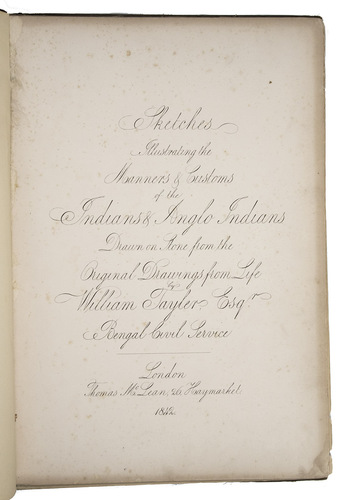 Sketches
Illustrating the
Manners & Customs
of the
Indians & Anglo Indians
Drawn on Stone from the
Original Drawings from Life
by
William Tayler Esqr.
Bengal Civil Service
London
Thomas Mc.Lean, 26 Haymarket
1842.